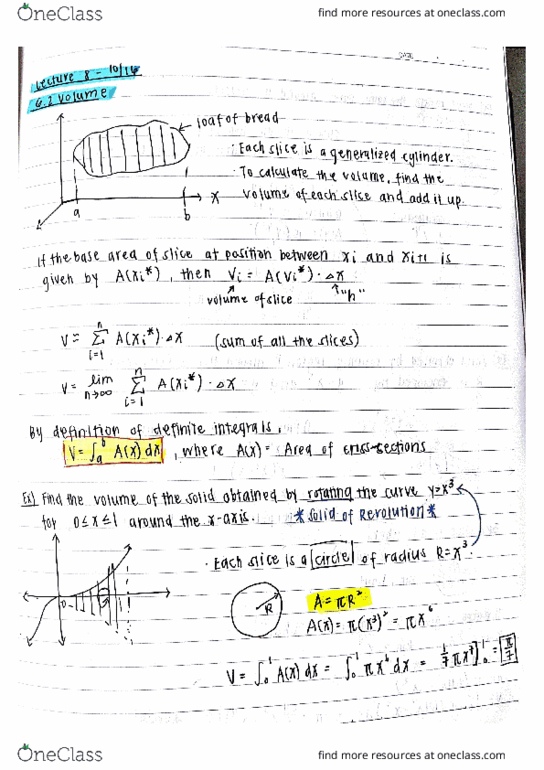 OneClass
find more resources at oneclass.com
DATE
Lecture 8 - 10/16
6.2 Volume
loaf of bread
· Each slice is a generalized cylinder.
· To calculate the volume, find the
volume of each slice and add it up.
a
b
x
If the base area of slice at position between xi and xi+1 is
given by A(xi*), then Vi = A(Vi*) · Δx
volume of slice
"h"
V = Σ_{i=1}^{n} A(xi*) · Δx (sum of all the slices)
V = lim_{n→∞} Σ_{i=1}^{n} A(xi*) · Δx
By definition of definite integrals,
V = ∫_a^b A(x) dx , where A(x) = Area of cross-sections
Ex) Find the volume of the solid obtained by rotating the curve y=x³
for 0≤x≤1 around the x-axis. *Solid of Revolution*
· Each slice is a circle of radius R=x³
0
R
A = πR²
A(x) = π(x³)² = πx⁶
V = ∫_0^1 A(x) dx = ∫_0^1 πx⁶ dx = 1/7 πx⁷]_0^1 = π/7
OneClass
find more resources at oneclass.com